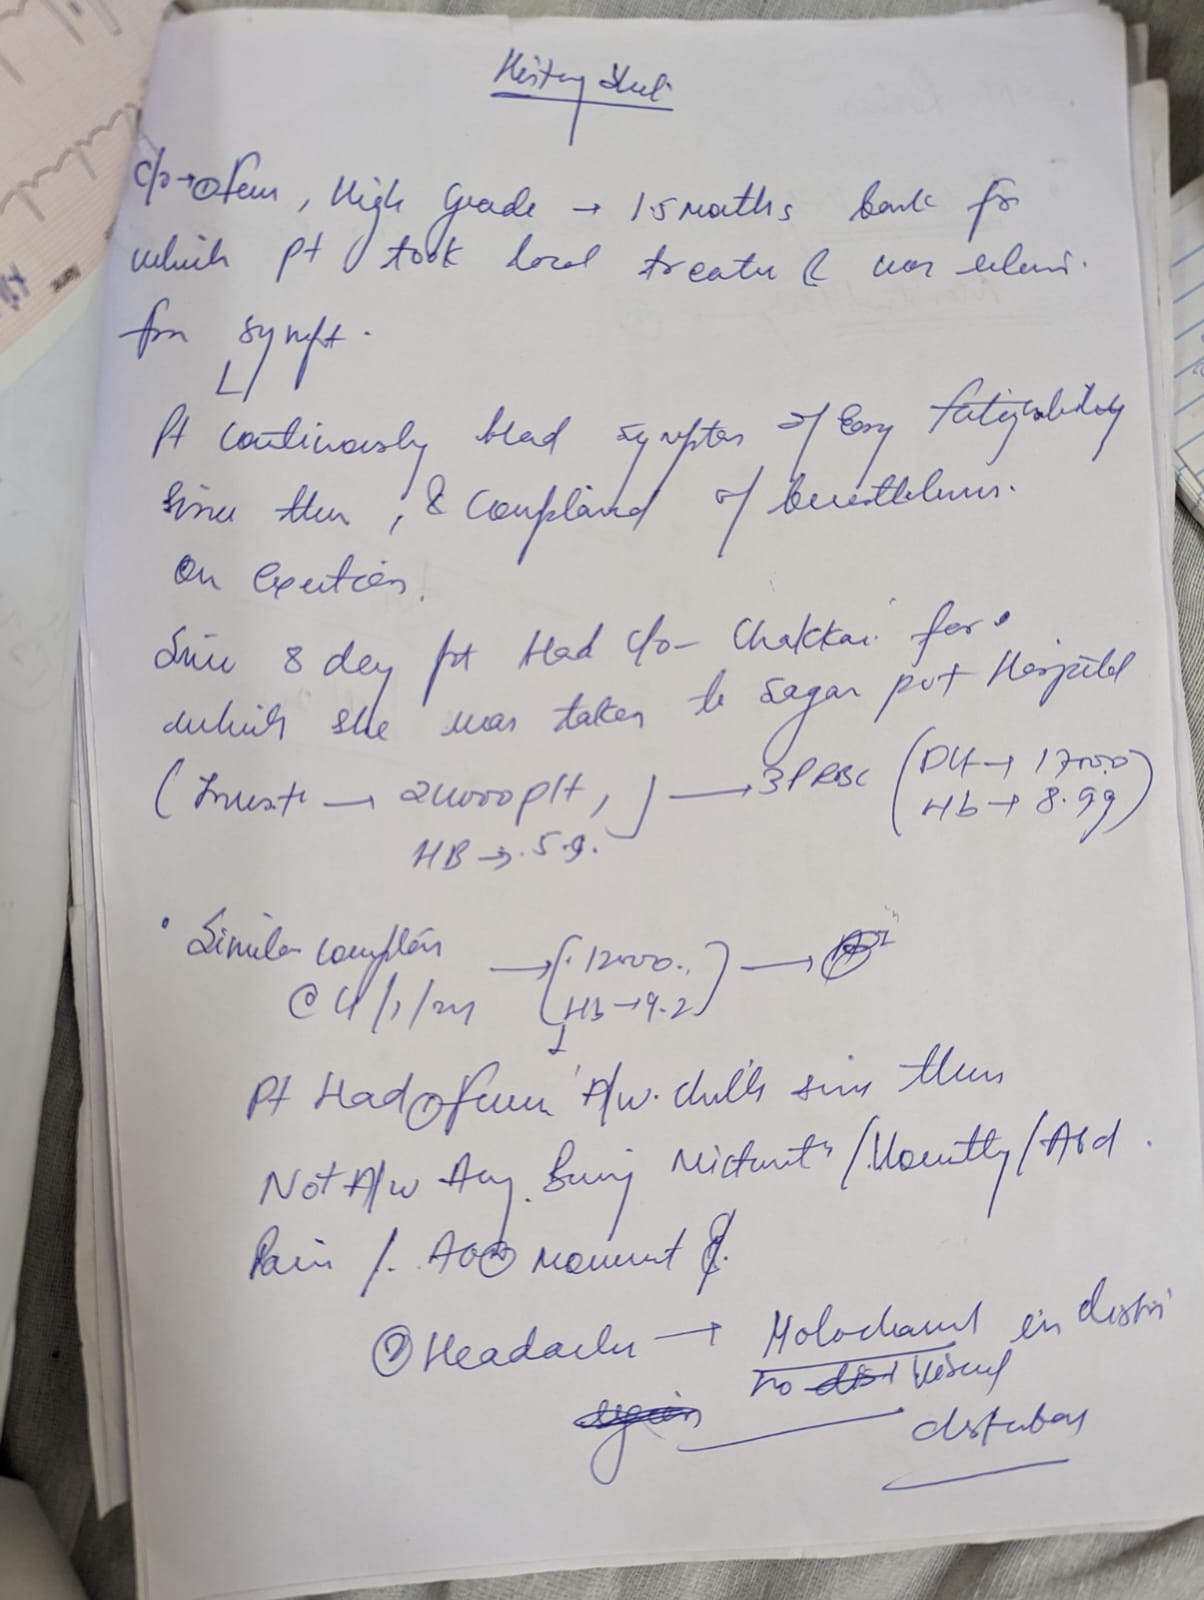 History Sheet
c/o → ① Fever, High Grade → 15 months back for
which pt took local treatm & was
for sympt.
Pt continuously Had symptom of Easy fatigability
since then, & complained of breathlessness.
on exertion.
Since 8 day pt Had c/o - Chakkar for
which she was taken to Sagar pvt Hospital
( → plt, ) → 3PRBC (Plt →
HB → 5 g. Hb → 8.9g)
• Similar complain →
@ Hb → 9.2
Pt Had ① Fever A/w. chills since then
Not A/w Any Burning Micturit / Vomiting / Abd.
Pain /. movement
② Headache → Holocranial in distri
no visual
disturban